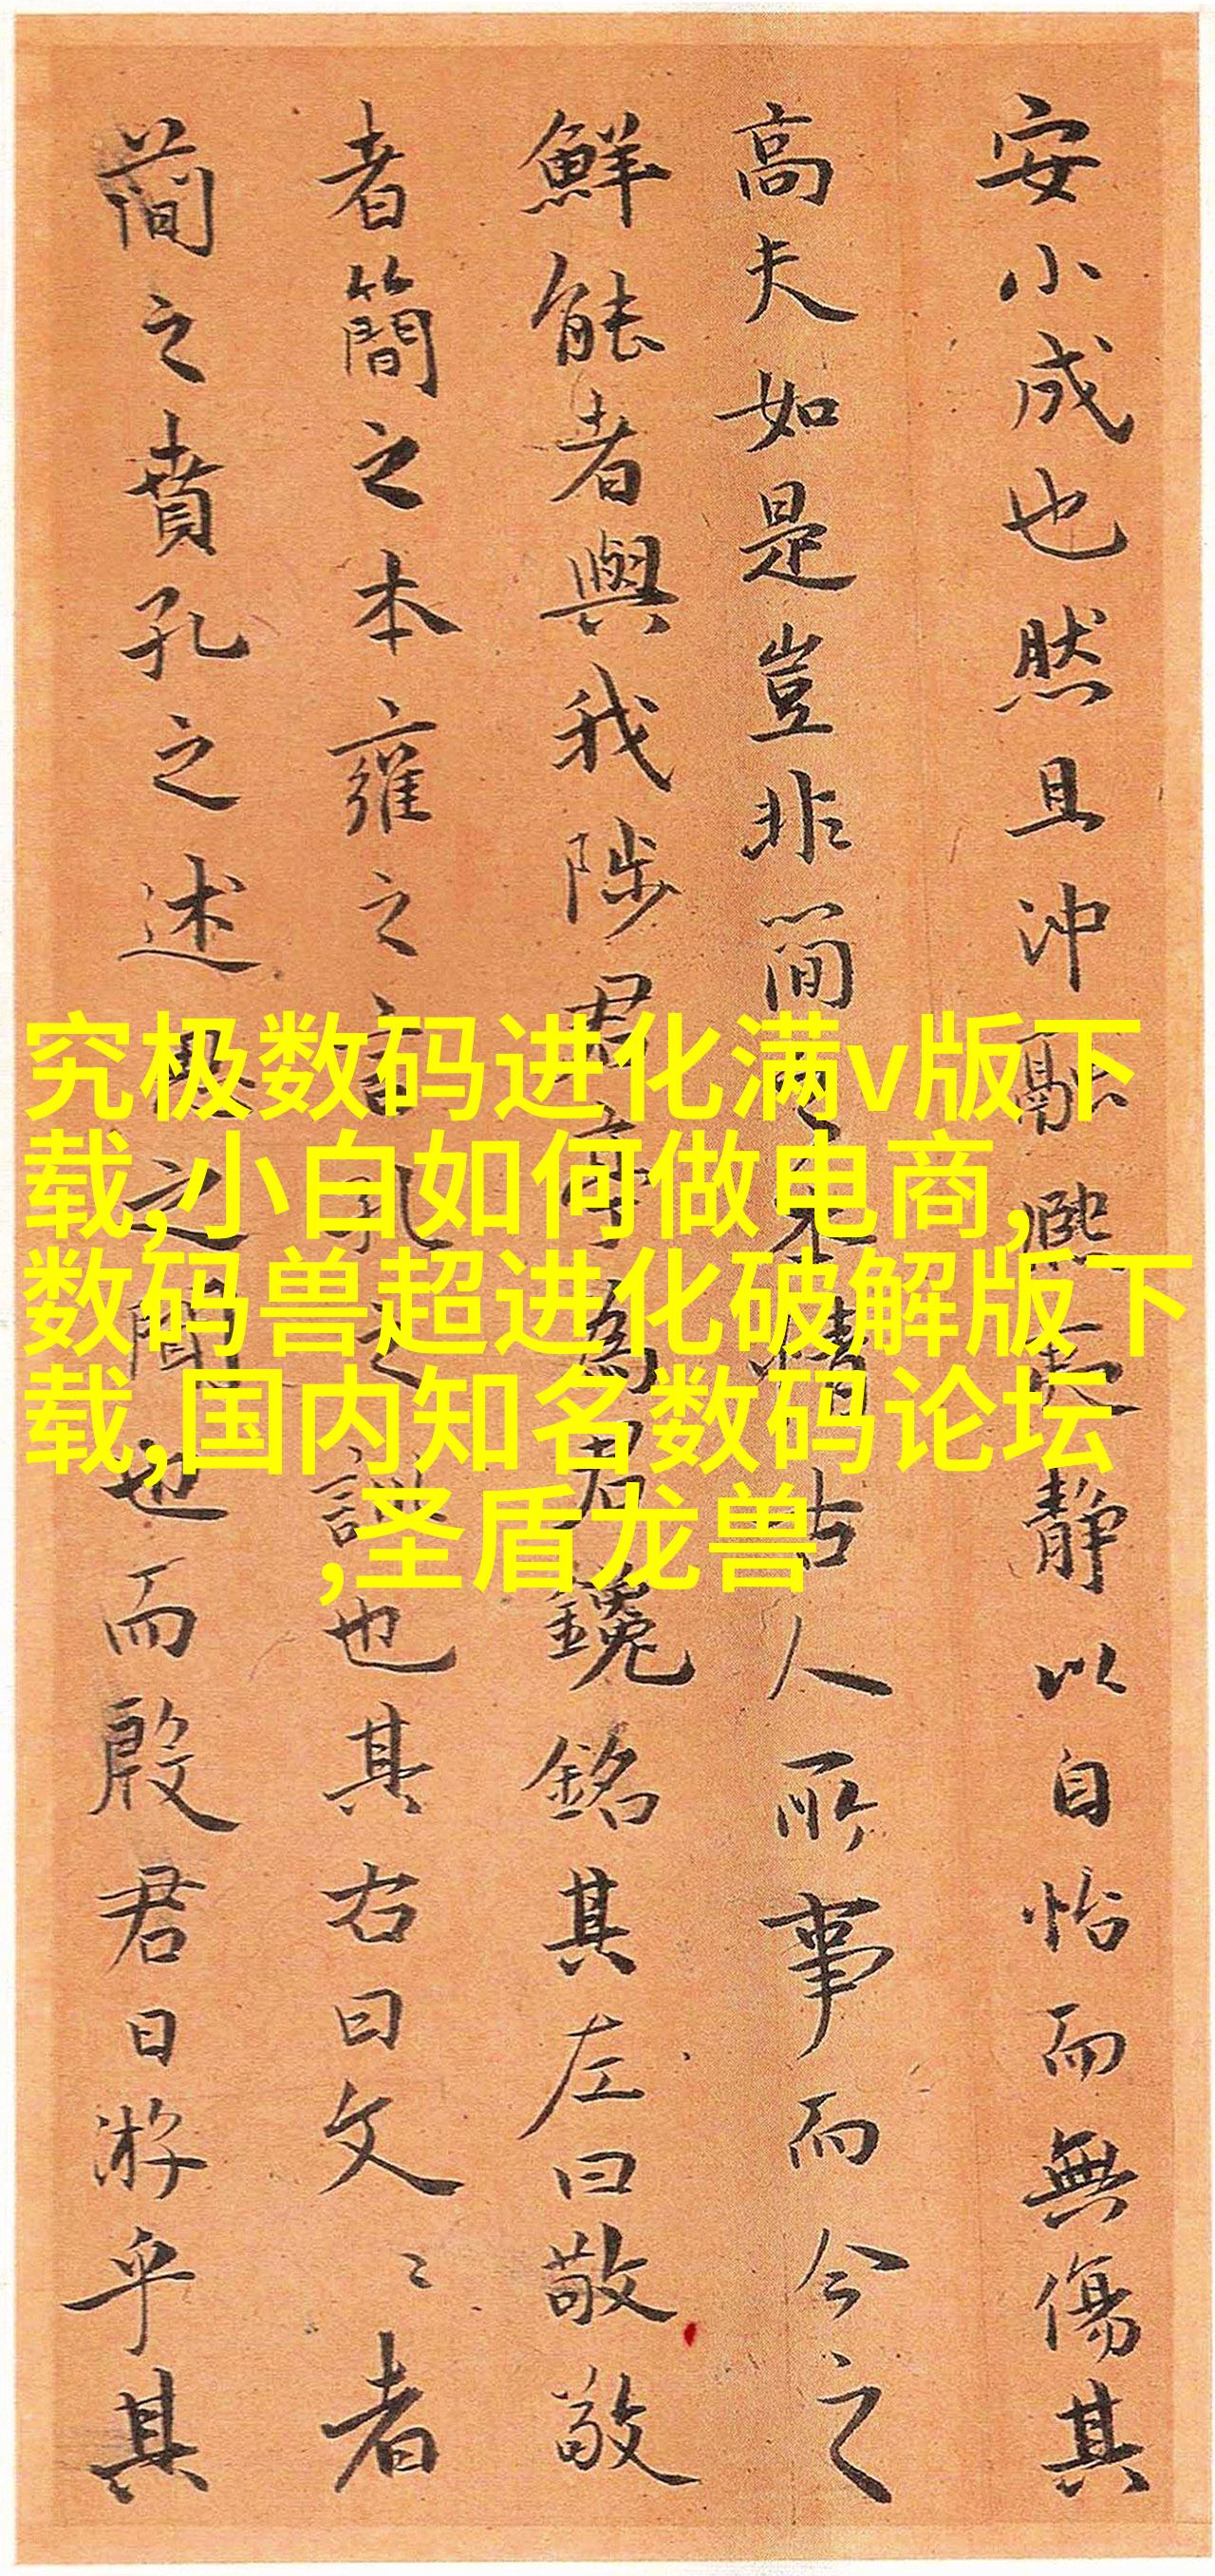 安小成也然且沖融熙夷靜以自怡而無傷其
高夫如是豈非簡之本情古人所事而今之
鮮能者與我陟君亭為君鑱銘其左曰敬敬
者簡之本雍之言孔之訓也其右曰文〻者
簡之賁孔之述殷之間也而殷君日游乎其
究极数码进化满v版下
载,小白如何做电商,
数码兽超进化破解版下
载,国内知名数码论坛
,圣盾龙兽